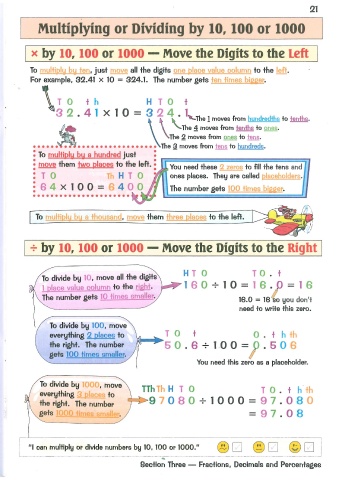 21
Multiplying or Dividing by 10, 100 or 1000
× by 10, 100 or 1000 — Move the Digits to the Left
To multiply by ten, just move all the digits one place value column to the left.
For example, 32.41 × 10 = 324.1. The number gets ten times bigger.
T O t h H T O t
32.41 × 10 = 324.1
The 1 moves from hundredths to tenths.
The 4 moves from tenths to ones.
The 2 moves from ones to tens.
The 3 moves from tens to hundreds.
To multiply by a hundred just
move them two places to the left.
T O Th H T O
64 × 100 = 6400
You need these 2 zeros to fill the tens and
ones places. They are called placeholders.
The number gets 100 times bigger.
To multiply by a thousand, move them three places to the left.
÷ by 10, 100 or 1000 — Move the Digits to the Right
To divide by 10, move all the digits
1 place value column to the right.
The number gets 10 times smaller.
H T O T O . t
160 ÷ 10 = 16.0 = 16
16.0 = 16 so you don't
need to write this zero.
To divide by 100, move
everything 2 places to
the right. The number
gets 100 times smaller.
T O t O . t h th
50.6 ÷ 100 = 0.506
You need this zero as a placeholder.
To divide by 1000, move
everything 3 places to
the right. The number
gets 1000 times smaller.
TTh Th H T O T O . t h th
97080 ÷ 1000 = 97.080
= 97.08
"I can multiply or divide numbers by 10, 100 or 1000."
Section Three — Fractions, Decimals and Percentages